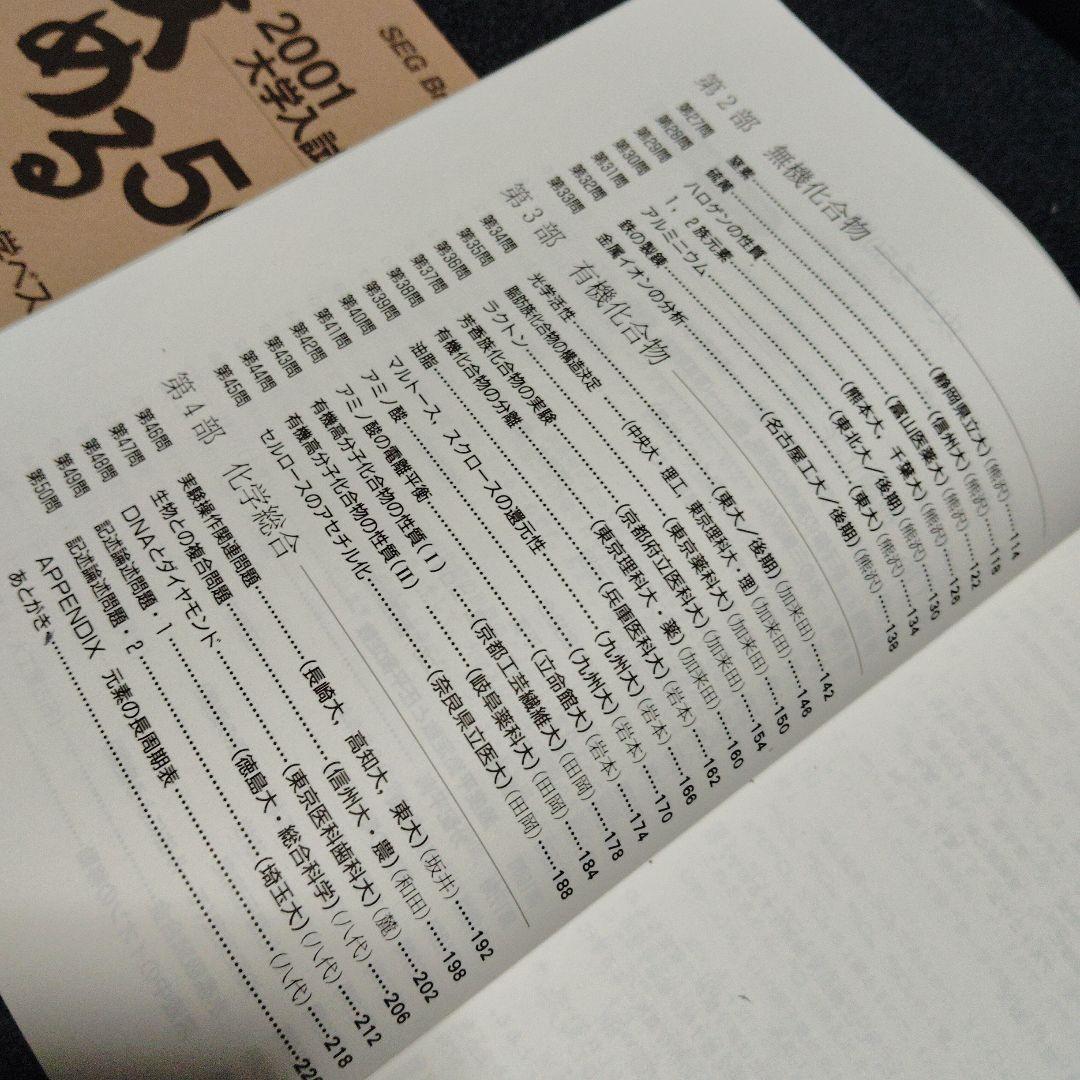 SEG Br
2001
大学入試
める
5
学ベス
第2部 無機化合物
第27問 窒素 (静岡県立大) (熊沢) 114
第28問 硫黄 (信州大) (熊沢) 118
第29問 ハロゲンの性質 (富山医薬大) (熊沢) 122
第30問 1,2族元素 (熊本大,千葉大) (熊沢) 126
第31問 アルミニウム (東北大/後期) (熊沢) 130
第32問 鉄の製錬 (東大) (熊沢) 134
第33問 金属イオンの分析 (名古屋工大/後期) (熊沢) 138
第3部 有機化合物
第34問 光学活性 (東大/後期) (加来田) 142
第35問 脂肪族化合物の構造決定 (中央大 理工, 東京理科大 理) (加来田) 146
第36問 ラクトン (東京薬科大) (加来田) 150
第37問 芳香族化合物の実験 (京都府立医科大) (加来田) 154
第38問 有機化合物の分離 (東京理科大・薬) (加来田) 160
第39問 油脂 (兵庫医科大) (岩本) 162
第40問 マルトース,スクロースの還元性 (九州大) (岩本) 166
第41問 アミノ酸 (九州大) (岩本) 170
第42問 アミノ酸の電離平衡 (立命館大) (岩本) 174
第43問 有機高分子化合物の性質(I) (京都工芸繊維大) (田岡) 178
第44問 有機高分子化合物の性質(II) (岐阜薬科大) (田岡) 184
第45問 セルロースのアセチル化 (奈良県立医大) (田岡) 188
第4部 化学総合
第46問 実験操作関連問題 (長崎大,高知大,東大) (坂井) 192
第47問 生物との複合問題 (信州大・農) (和田) 198
第48問 DNAとダイヤモンド (東京医科歯科大) (麓) 202
第49問 記述論述問題・1 (徳島大・総合科学) (八代) 206
第50問 記述論述問題・2 (埼玉大) (八代) 212
APPENDIX 元素の長周期表 (八代) 218
あとがき